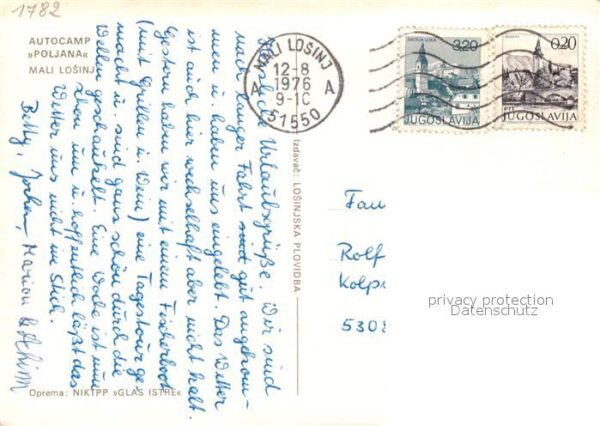 1782
AUTOCAMP
»POLJANA«
MALI LOŠINJ
Herzliche Urlaubsgrüße. Wir sind
nach langer Fahrt gut angekom-
men u. haben uns eingelebt. Das Wetter
ist auch hier wechselhaft aber nicht kalt.
Gestern haben wir mit einem Fischerboot
(mit Grillen u. Wein) eine Tagestour ge-
macht u. sind ganz schön durch die
Wellen geschaukelt. Eine Woche ist nun
schon um u. hoffentlich läßt das
Wetter uns nicht im Stich.
Betty, Jochen, Marion & Achim
Oprema: NIKTPP »GLAS ISTRE«
Izdavač: LOŠINJSKA PLOVIDBA
MALI LOŠINJ
12-8
1976
9-10
A A
51550
3.20
JUGOSLAVIJA
0.20
PTT
JUGOSLAVIJA
Fam
Rolf
Kolp
5308
privacy protection
Datenschutz